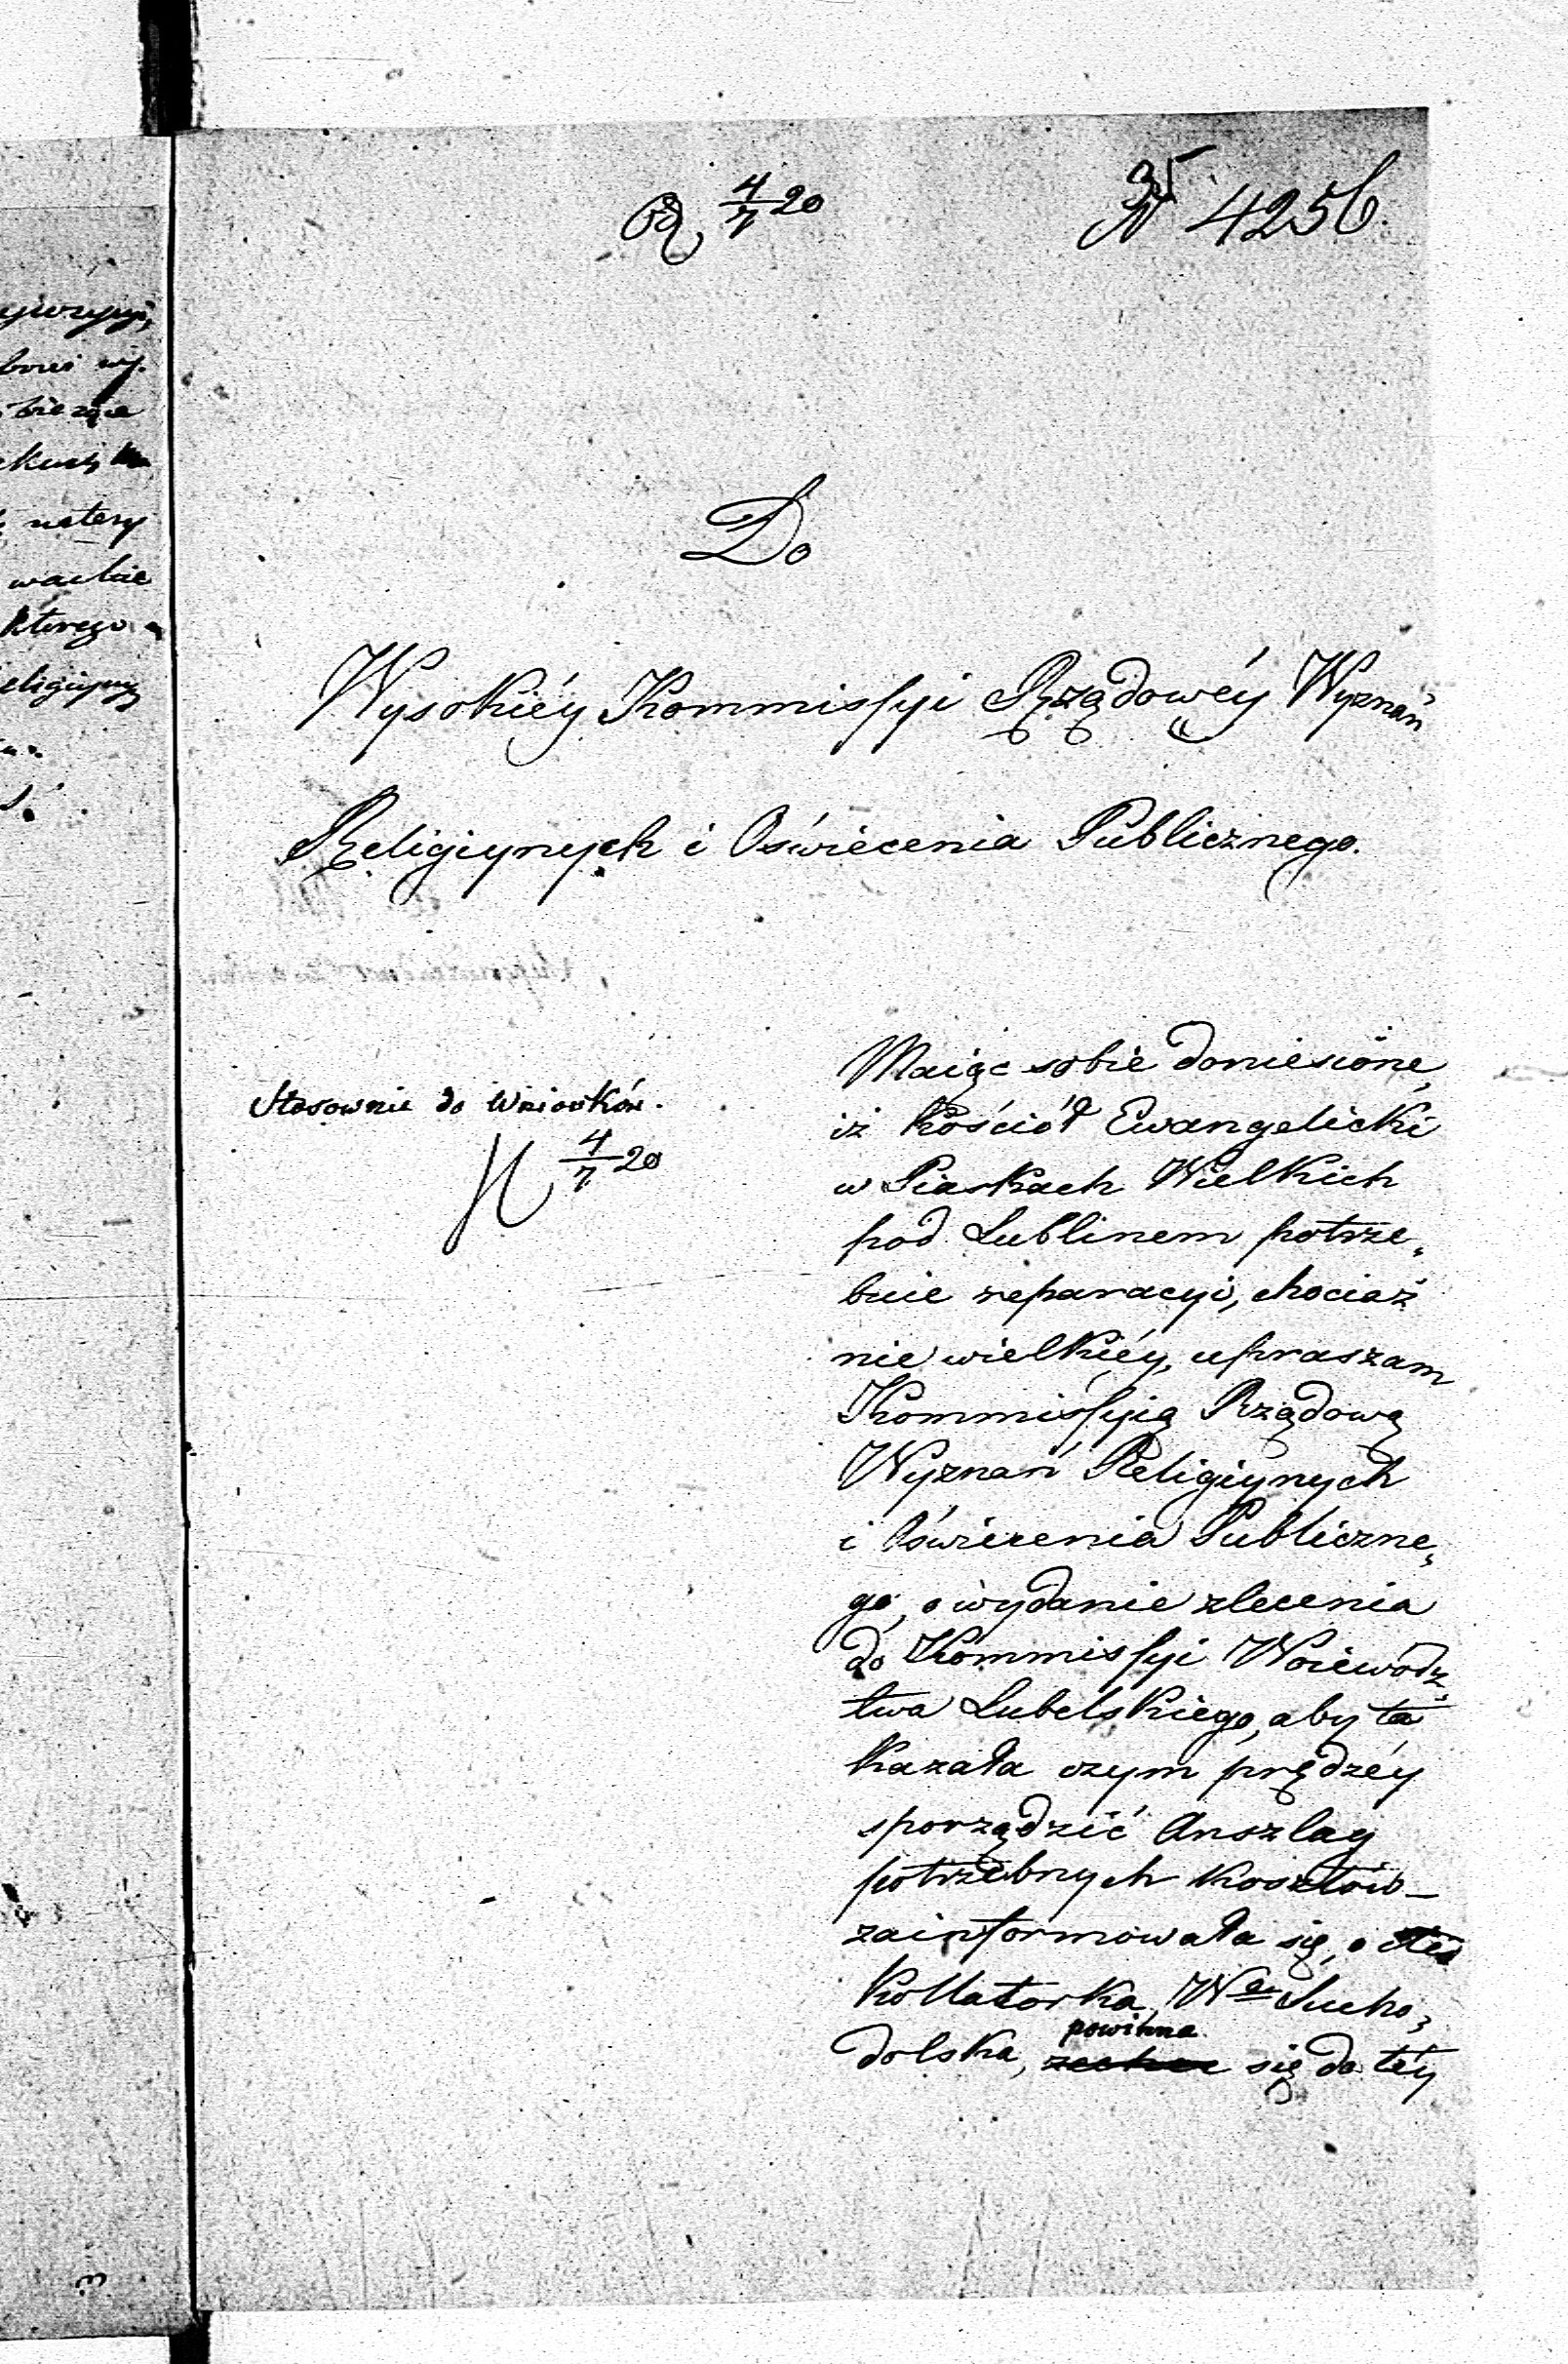 4/7 20
35
№ 4256
Do
Wysokiéy Kommissyi Rządowéy Wyznań
Religiynych i Oświecenia Publicznego.
Stosownie do Wniosków.
4/7 20
Maiąc sobie doniesione,
iż kościół Ewangelicki
w Piaskach Wielkich
pod Lublinem potrze„
buie reparacyi, chociaż
nie wielkiéy, upraszam
Kommissyią Rządową
Wyznań Religiynych
i Oświecenia Publiczne„
go, o wydanie zlecenia
do Kommissyi Woiewódz„
twa Lubelskiego, aby ta
kazała czym prędzéy
sporządzić Anszlag
potrzebnych kosztów
zainformowała się, o
kollatorka, Wa Sucho„
powinna
dolska, się do téy
ktorego